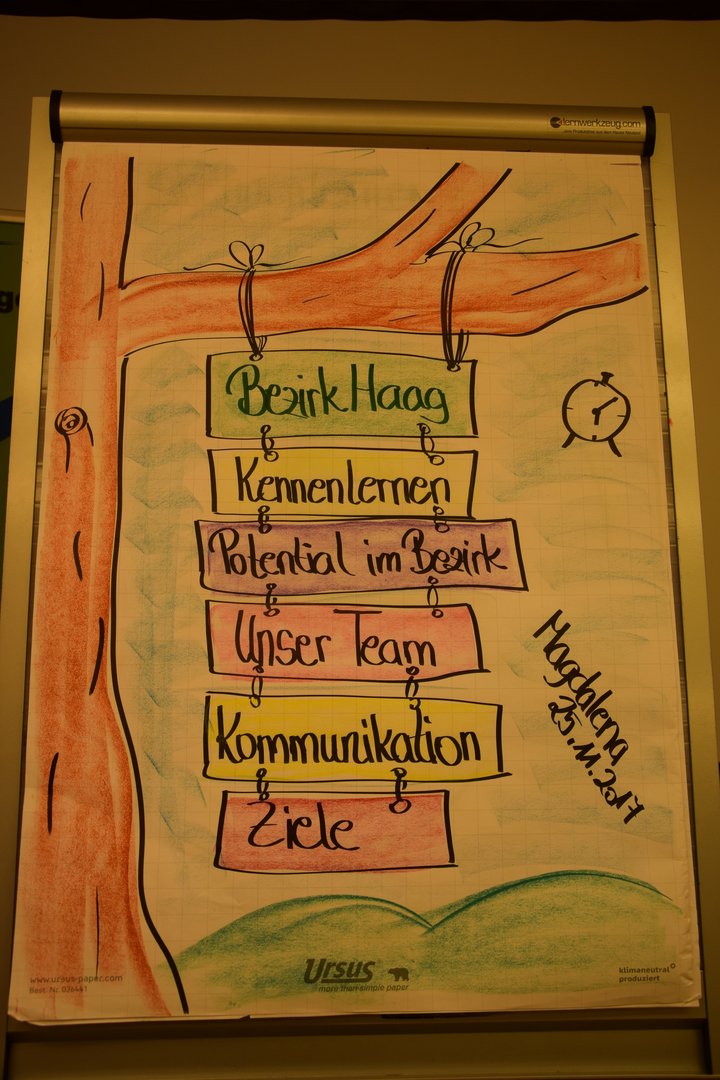 lernwerkzeug.com
Bezirk Haag
Kennenlernen
Potential im Bezirk
Unser Team
Kommunikation
Ziele
Magdalena
25.11.2017
www.ursus-paper.com
Best. Nr. 076441
Ursus
more than simple paper
klimaneutral
produziert